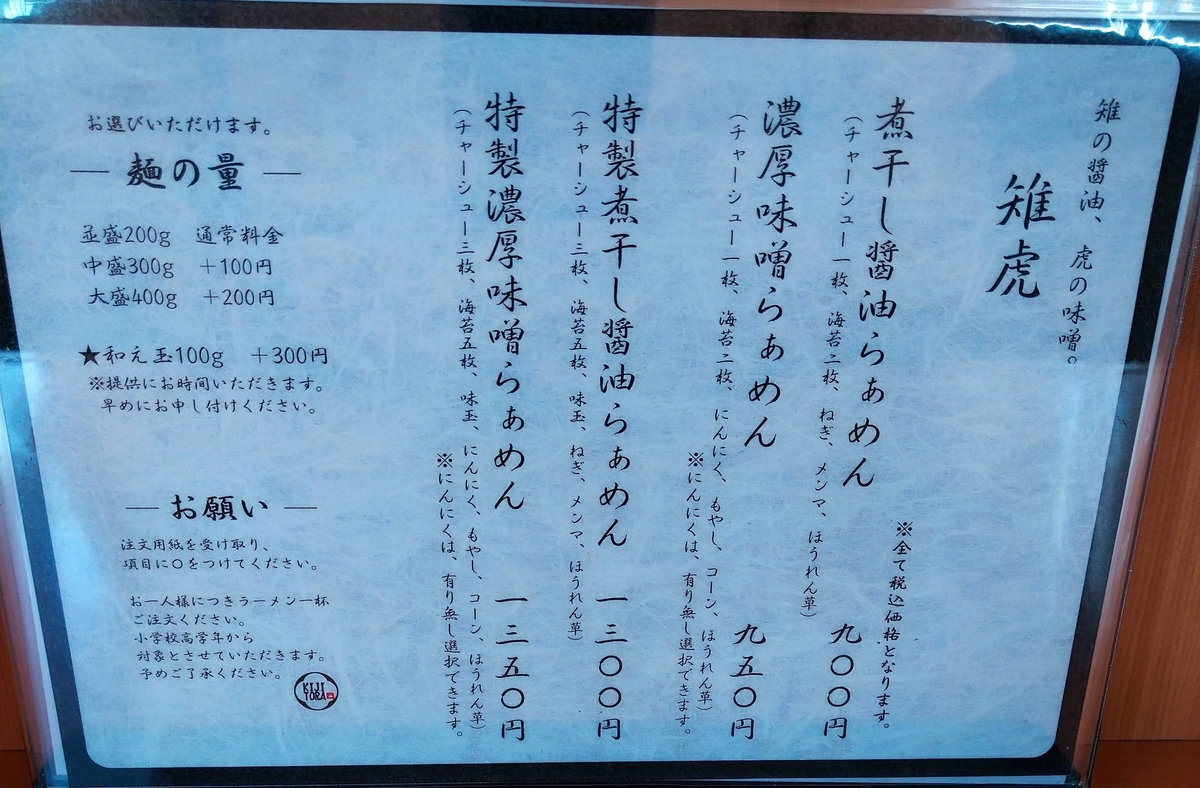 雉の醤油、虎の味噌。
雉虎
※全て税込価格となります。
煮干し醤油らぁめん 九〇〇円
（チャーシュー一枚、海苔二枚、ねぎ、メンマ、ほうれん草）
濃厚味噌らぁめん 九五〇円
（チャーシュー一枚、海苔二枚、にんにく、もやし、コーン、ほうれん草）
※にんにくは、有り無し選択できます。
特製煮干し醤油らぁめん 一三〇〇円
（チャーシュー三枚、海苔五枚、味玉、ねぎ、メンマ、ほうれん草）
特製濃厚味噌らぁめん 一三五〇円
（チャーシュー三枚、海苔五枚、味玉、にんにく、もやし、コーン、ほうれん草）
※にんにくは、有り無し選択できます。
お選びいただけます。
― 麺の量 ―
並盛200g 通常料金
中盛300g ＋100円
大盛400g ＋200円
★和え玉100g ＋300円
※提供にお時間いただきます。
早めにお申し付けください。
― お願い ―
注文用紙を受け取り、
項目に〇をつけてください。
お一人様につきラーメン一杯
ご注文ください。
小学校高学年から
対象とさせていただきます。
予めご了承ください。
KIJI
TORA